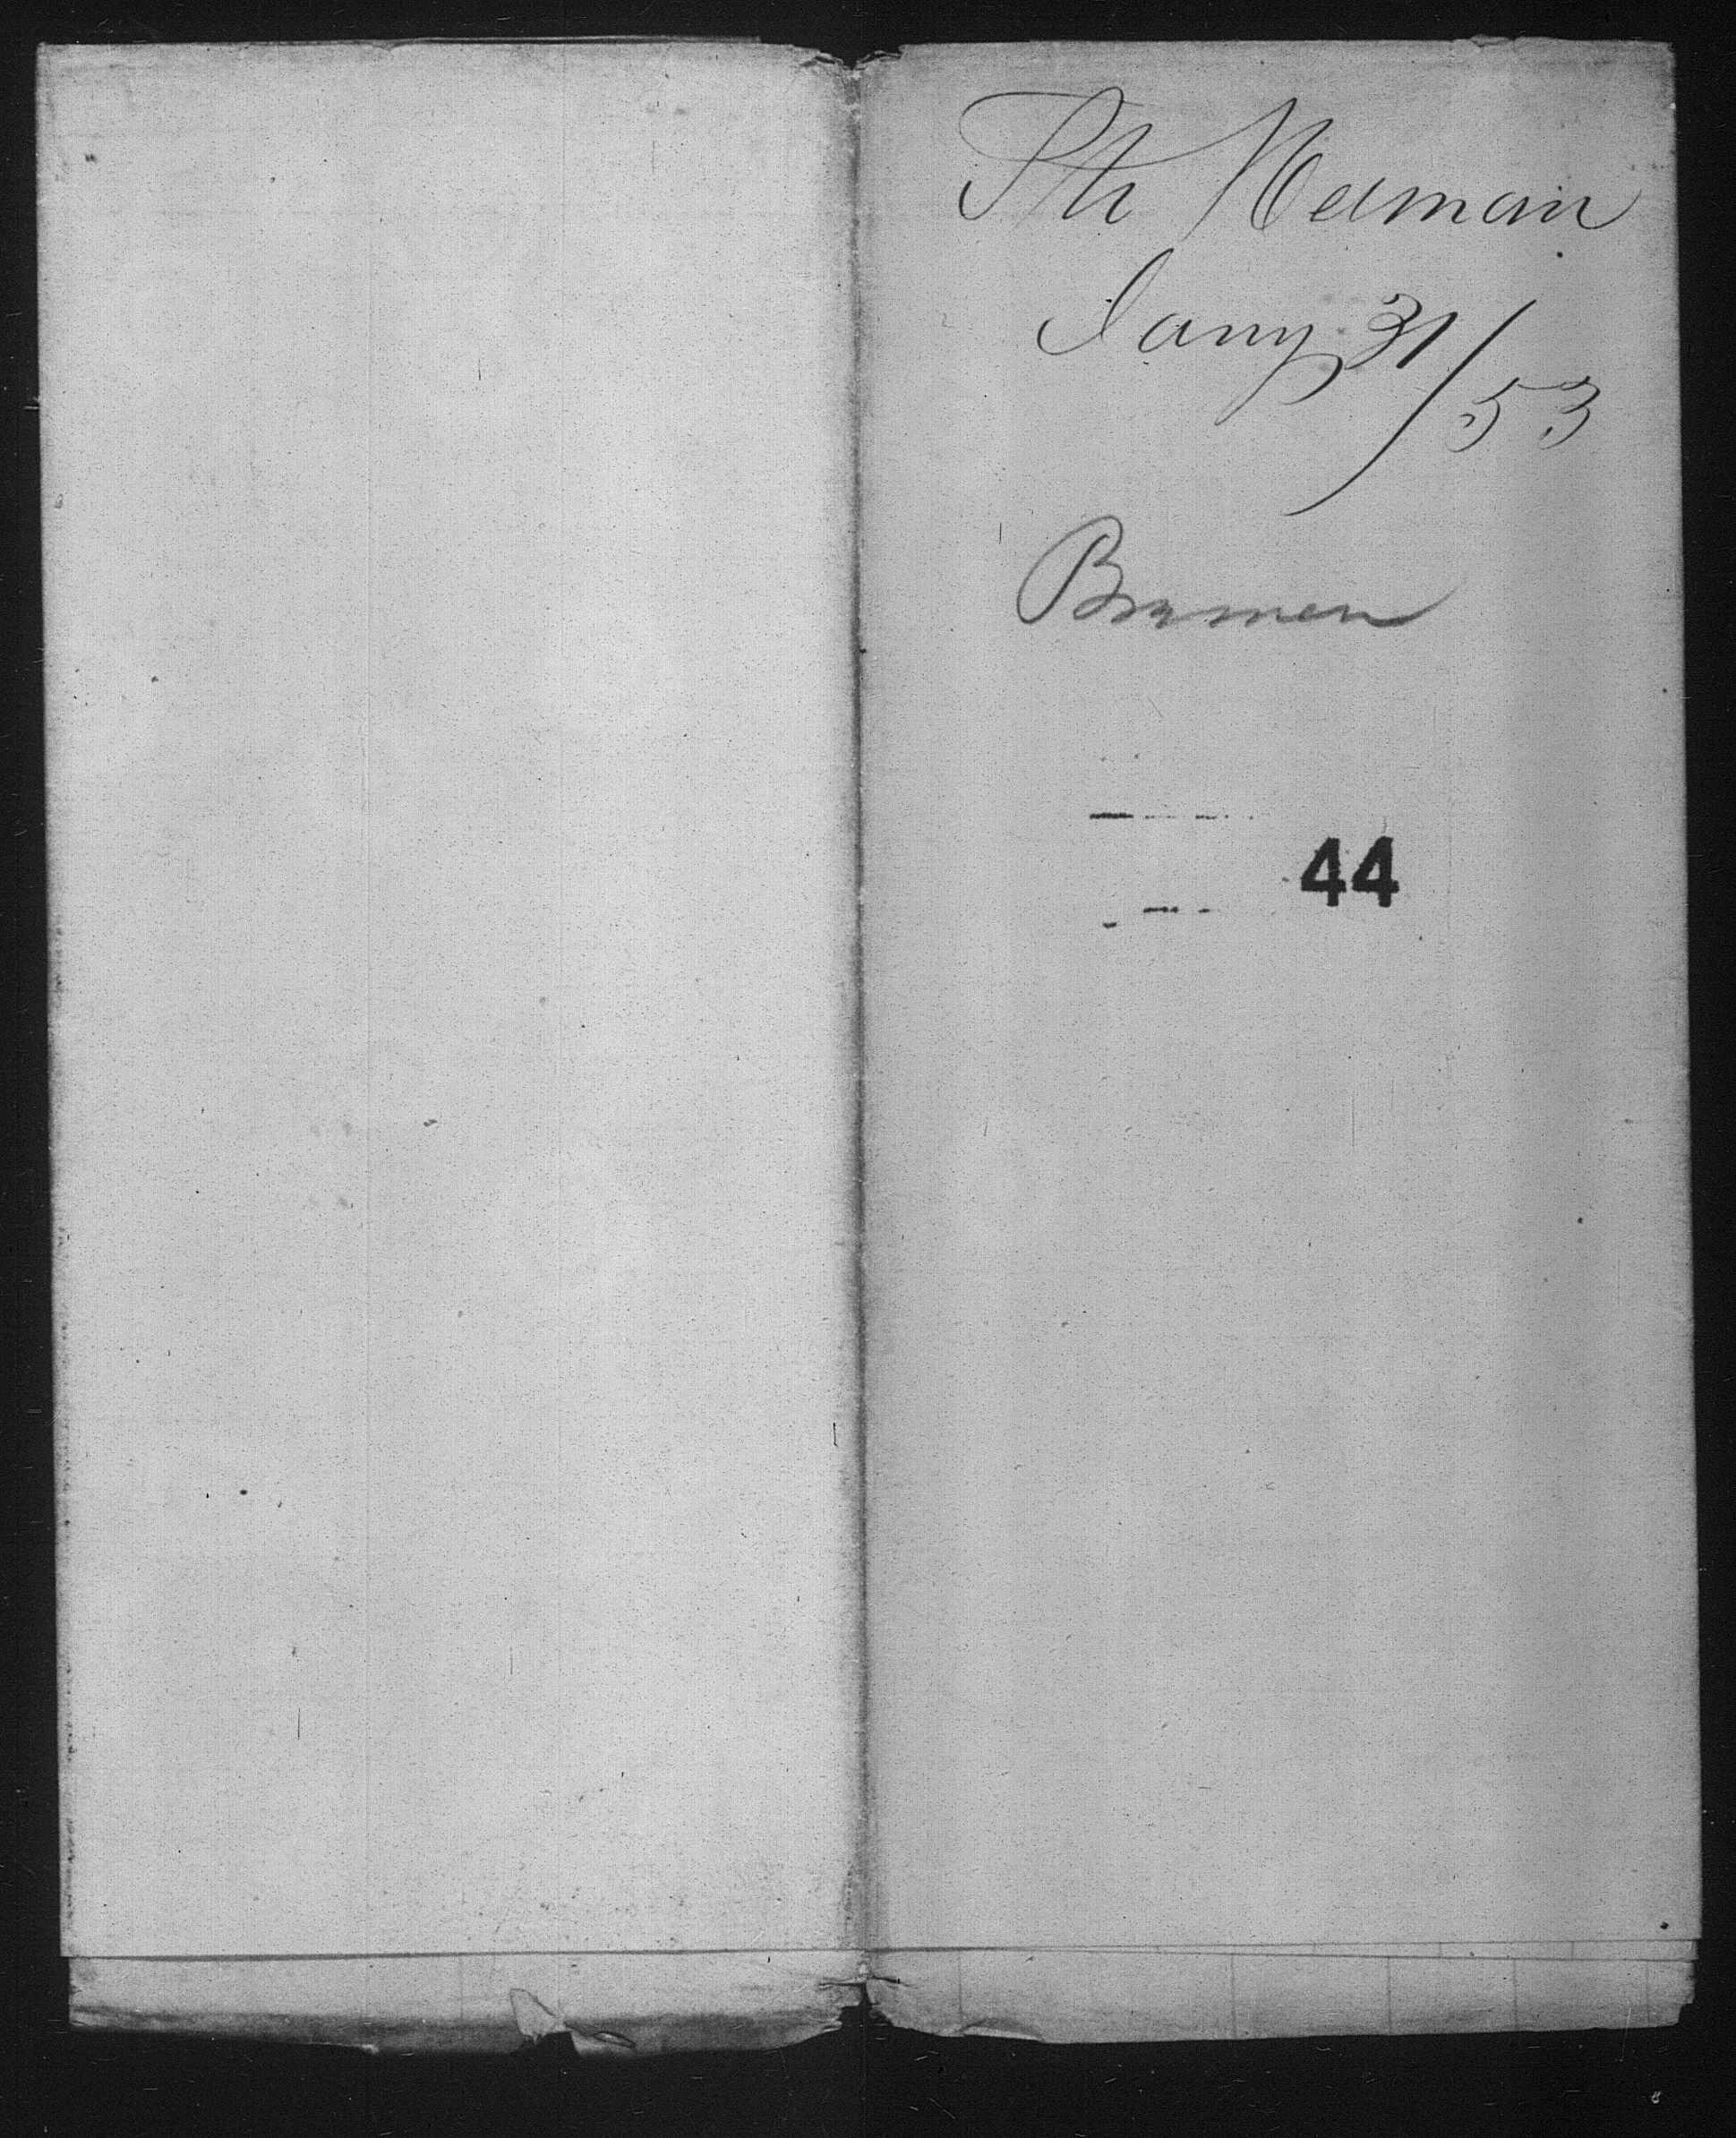 Str Herman
Jany 31/53
Bremen
44